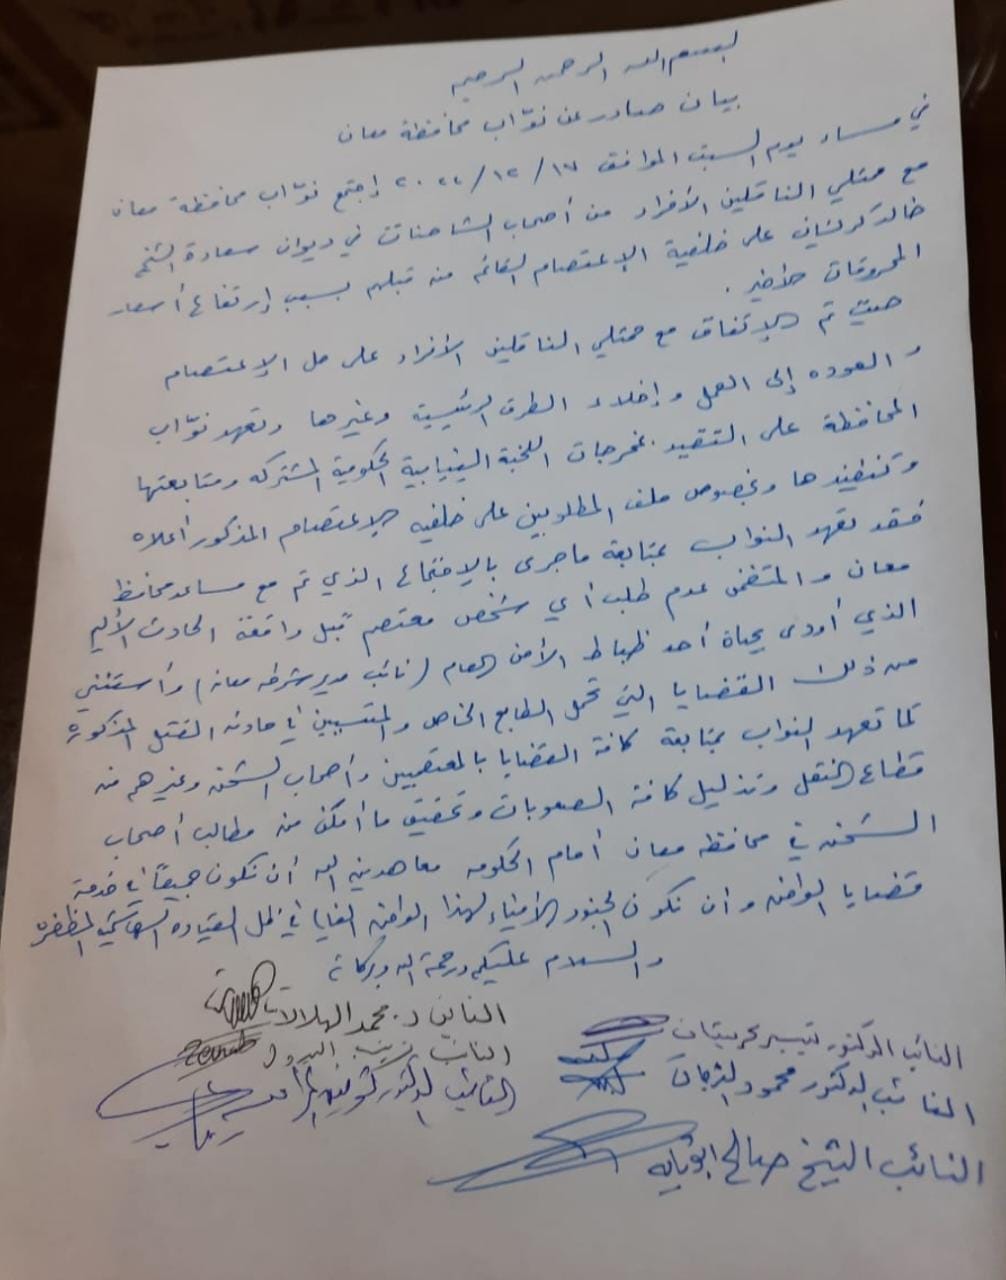 بسم الله الرحمن الرحيم
بيان صادر عن نوّاب محافظة معان
في مساء يوم السبت الموافق ١٧/١٢/٢٠٢٢ إجتمع نوّاب محافظة معان
مع ممثلي الناقلين الأفراد من أصحاب الشاحنات في ديوان سعادة الشيخ
خالد كريشان على خلفية الإعتصام القائم من قبلهم بسبب إرتفاع أسعار
المحروقات الأخير.
حيث تم الإتفاق مع ممثلي الناقلين الأفراد على حل الإعتصام
و العوده إلى العمل وإخلاء الطرق الرئيسية وغيرها وتعهد نوّاب
المحافظة على التقيد بمخرجات اللجنة النيابية الحكومية المشتركه ومتابعتها
وتنفيذها وبخصوص ملف المطلوبين على خلفيه الإعتصام المذكور أعلاه
فقد تعهد النواب بمتابعة ماجرى بالإجتماع الذي تم مع مساعد محافظ
معان والمتضمن عدم طلب أي شخص معتصم قبل واقعة الحادث الأليم
الذي أودى بحياة أحد ظباط الأمن العام (نائب مدير شرطه معان) وأستثني
من ذلك القضايا التي تحمل الطابع الخاص والمتسببين في حادثه القتل المذكورة
كما تعهد النواب بمتابعة كافة القضايا بالمعتصمين وأصحاب الشحن وغيرهم من
قطاع النقل وتذليل كافة الصعوبات وتحقيق ما أمكن من مطالب أصحاب
الشحن في محافظه معان أمام الحكومه معاهدين الله أن نكون جميعاً في خدمة
قضايا الوطن وأن نكون الجنود الأمناء لهذا الوطن الغالي في ظل القياده الهاشمية المظفره
والسلام عليكم ورحمة الله وبركاته
النائب د. محمد الهلالات
النائب الدكتور تيسير كريشان
النائب زينب البدول
النائب الدكتور محمود
النائب الدكتور
النائب الشيخ صالح ابوتايه